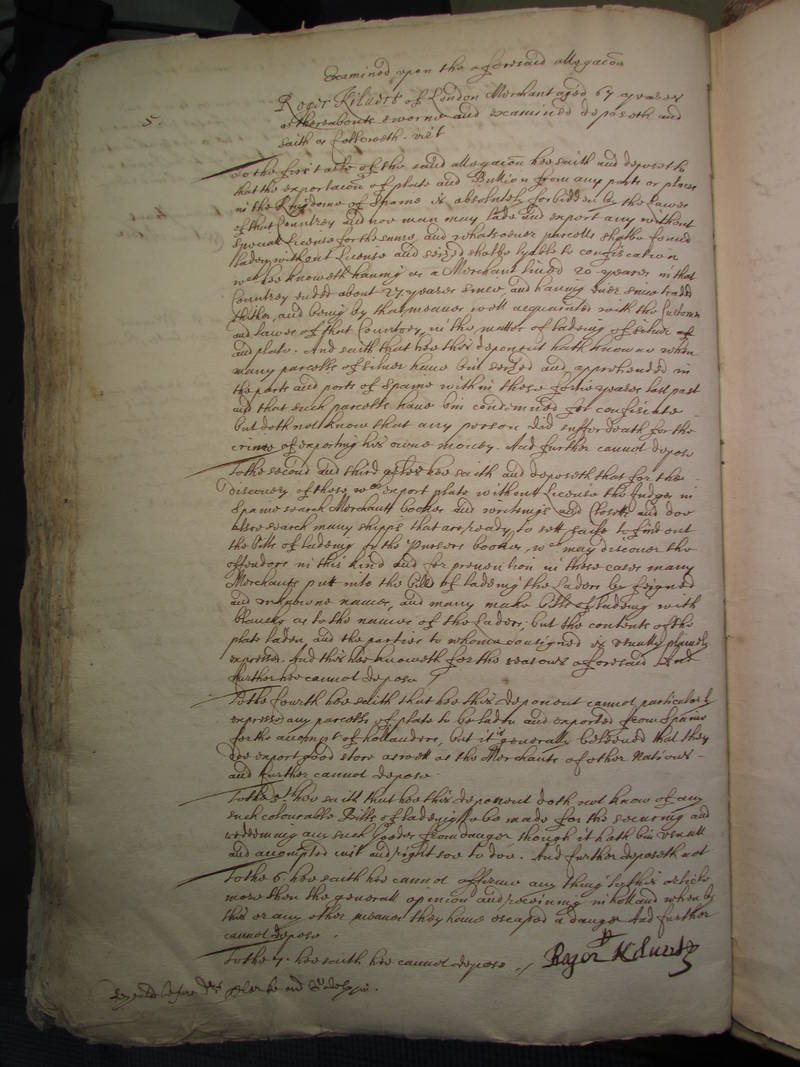 Examined upon the aforesaid allegacōn
5.
Roger Kilvert of London Merchant aged 67 yeares
or thereabouts sworne and examined deposeth and
saith as followeth. vizt
To the first arle of the said allegacōn hee saith and deposeth
that the exportacōn of plate and Bullion from any parts or places
in the Kingdome of Spaine is absolutely forbidden by the lawes
of that Countrey and noe man may lade and export any without
speciall License for the same, and whatsoever parcells shalbe found
laden without License and seized shalbe lyable to confiscation
wch hee knoweth having as a Merchant lived 20 yeares in that
Countrey ended about 27 yeares since, and having ever since traded
thither, and being by that meanes well acquainted with the Customes
and lawes of that Countrey, in the matter of ladeing of silver
and plate. And saith that hee this deponent hath knowne when
many parcells of silver have bin seized and apprehended in
the ports and parts of Spaine within these yeares last past
and that such parcells have bin condemned for confiscate
but doth not know that any person did suffer death for the
crime of exporting his owne money. And further cannot depose
To the second and third arles hee saith and deposeth that for the
Discovery of those wch export plate without License the Judges in
Spaine search Merchants bookes and writeings and Closetts and doe
alsoe search many shipps that are ready to sett saile to find out
the bills of ladeing or the Pursers bookes, wch may discover the
offenders in this kind and for prevention in these cases many
Merchants putt into the bills of ladeing the laders by feigned
and unknowne names, and many make bills of ladeing with
blancks as to the names of the laders, but the contents of the
plate laden, and the parties to whom consigned is usually plainely
expressed. And this hee knoweth for the reasons aforesaid And
further hee cannot depose
To the fourth hee saith that hee this deponent cannot particularly
expresse any parcells of plate to be laden and exported from Spaine
for the accompt of hollanders, but it is generally beleeved that they
doe export good store as well as the Merchants of other Nations
and further cannot depose.
To the 5t hee saith that hee this deponent doth not know of any
such colourable Bills of ladeing to be made for the secureing and
redeeming any such goodes from danger, though it hath bin usuall
and accompted just and right soe to doe. And further deposeth not
To the 6 hee saith hee cannot affirme any thing to this article
more then the generall opinion and in holland when by
this or any other meanes they have escaped a danger And further
cannot depose.
To the 7. hee saith hee cannot depose./
Roger Kilvert